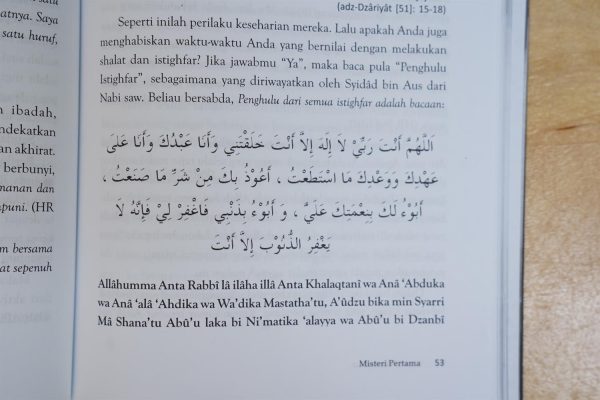 atnya. Saya
satu huruf,
ibadah,
ndekatkan
akhirat.
berbunyi,
manan dan
npuni. (HR
m bersama
at sepenuh
(adz-Dzâriyât [51]: 15-18)
Seperti inilah perilaku keseharian mereka. Lalu apakah Anda juga
menghabiskan waktu-waktu Anda yang bernilai dengan melakukan
shalat dan istighfar? Jika jawabmu “Ya”, maka baca pula “Penghulu
Istighfar”, sebagaimana yang diriwayatkan oleh Syidâd bin Aus dari
Nabi saw. Beliau bersabda, Penghulu dari semua istighfar adalah bacaan:
اَللَّهُمَّ أَنْتَ رَبِّيْ لاَ إِلَهَ إِلاَّ أَنْتَ خَلَقْتَنِي وَأَنَا عَبْدُكَ وَأَنَا عَلَى
عَهْدِكَ وَوَعْدِكَ مَا اسْتَطَعْتُ ، أَعُوْذُ بِكَ مِنْ شَرِّ مَا صَنَعْتُ ،
أَبُوْءُ لَكَ بِنِعْمَتِكَ عَلَيَّ ، وَ أَبُوْءُ بِذَنْبِي فَاغْفِرْ لِيْ فَإِنَّهُ لاَ
يَغْفِرُ الذُّنُوْبَ إِلاَّ أَنْتَ
Allâhumma Anta Rabbî lâ ilâha illâ Anta Khalaqtanî wa Anâ ‘Abduka
wa Anâ ‘alâ ‘Ahdika wa Wa’dika Mastatha’tu, A’ûdzu bika min Syarri
Mâ Shana’tu Abû’u laka bi Ni’matika ‘alayya wa Abû’u bi Dzanbî
Misteri Pertama 53